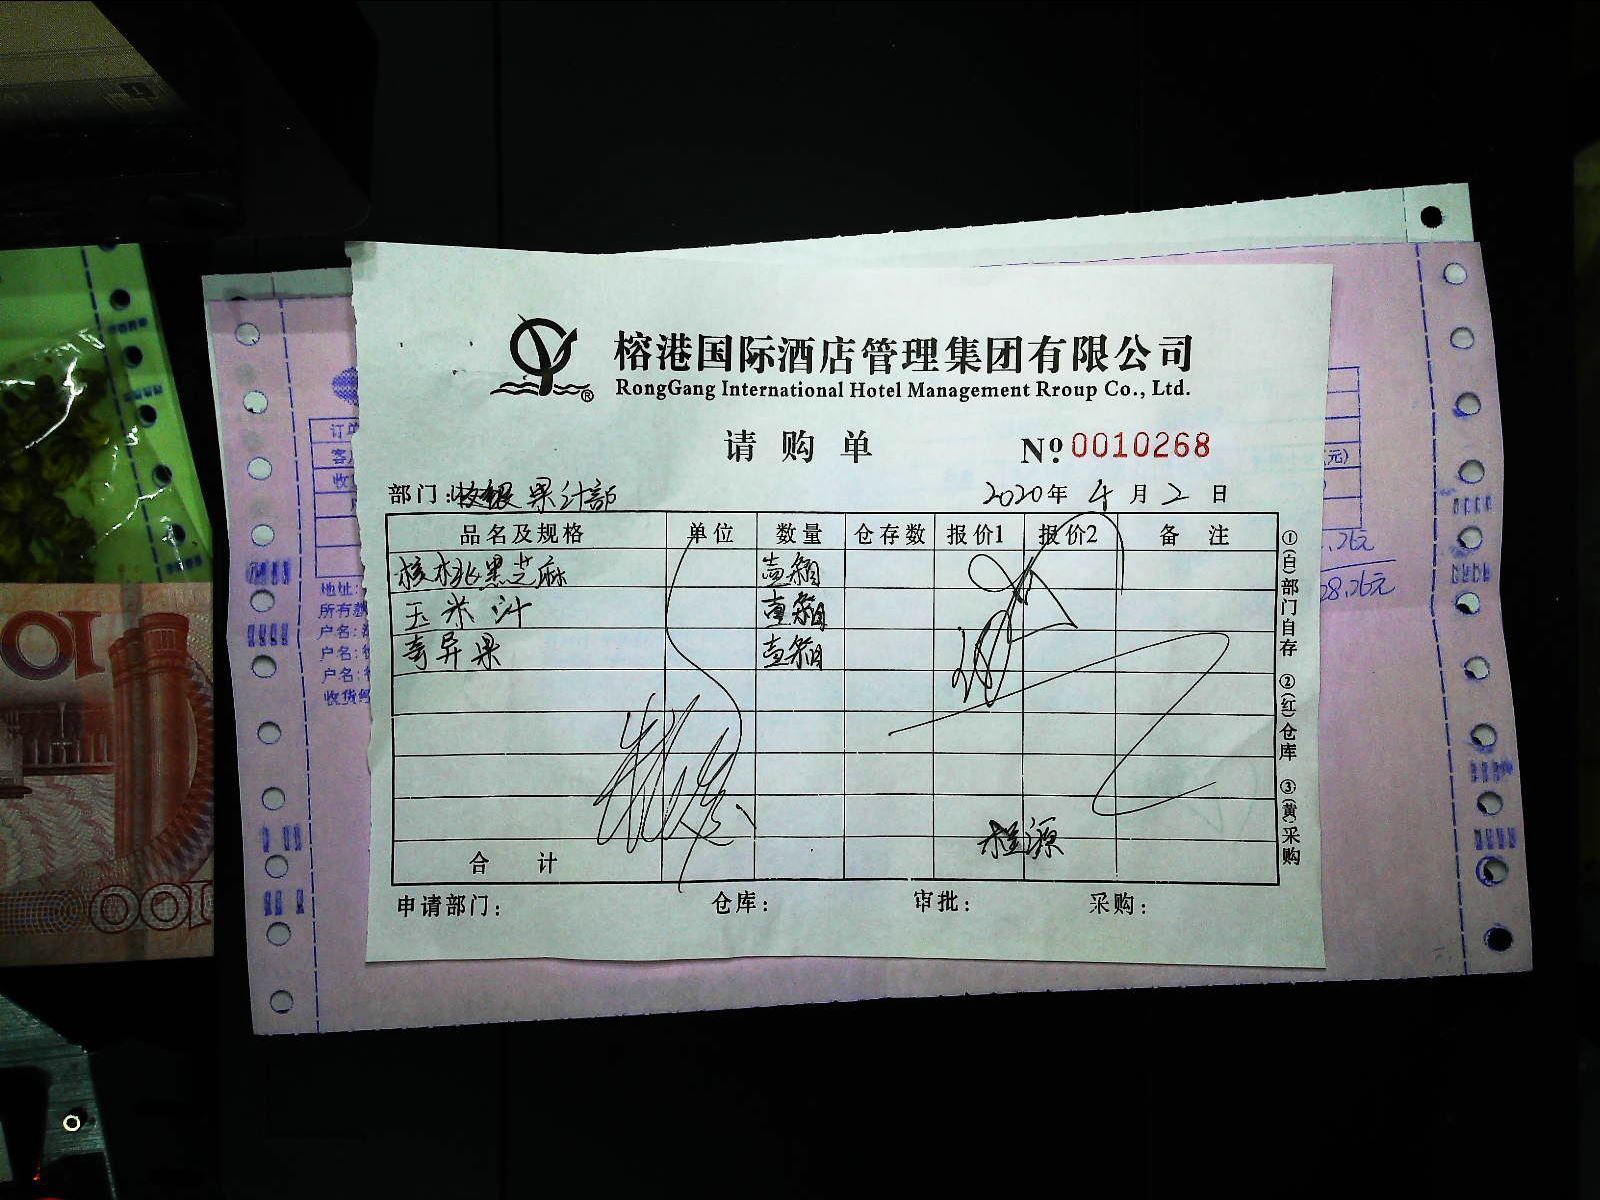 榕港国际酒店管理集团有限公司
RongGang International Hotel Management Rroup Co., Ltd.
请购单 Nº 0010268
部门: 收银 果汁部 2020年 4月 2日
品名及规格 单位 数量 仓存数 报价1 报价2 备注
核桃黑芝麻 壹箱
玉米汁 壹箱
奇异果 壹箱
合计
申请部门: 仓库: 审批: 采购:
①(白)部门自存 ②(红)仓库 ③(黄)采购
元)
28.26元
地址:
所有
户名:
户名:
户名:
收货
100